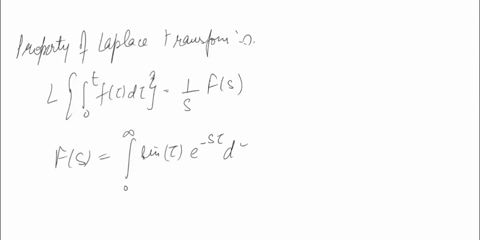 Property of Laplace transform is.
L{∫₀ᵗ f(τ)dτ} = 1/s F(s)
F(s) = ∫₀^∞ sin(τ) e^{-sτ} d